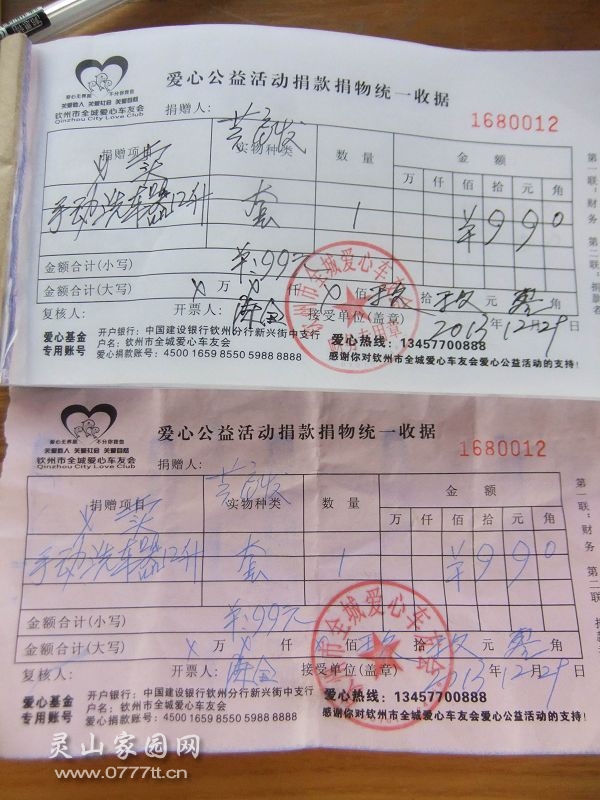 爱心无界限 不分你我他
关爱他人 关爱社会 关爱自然
钦州市全城爱心车友会
Qinzhou City Love Club
爱心公益活动捐款捐物统一收据
捐赠人:
1680012
捐赠项目 实物种类 数量 金额
万 仟 佰 拾 元 角
手动洗车器12升 套 1 ¥990
金额合计(小写) ¥:99元
金额合计(大写) 万 仟 佰 玖 拾 玖 元 零 角
复核人: 开票人: 接受单位(盖章) 2013年12月29日
爱心基金 专用账号
开户银行:中国建设银行钦州分行新兴街中支行
户名:钦州市全城爱心车友会
爱心捐款账号:4500 1659 8550 5988 8888
爱心热线:13457700888
感谢你对钦州市全城爱心车友会爱心公益活动的支持!
第一联:财务
爱心无界限 不分你我他
关爱他人 关爱社会 关爱自然
钦州市全城爱心车友会
Qinzhou City Love Club
爱心公益活动捐款捐物统一收据
捐赠人:
1680012
捐赠项目 实物种类 数量 金额
万 仟 佰 拾 元 角
手动洗车器12升 套 1 ¥990
金额合计(小写) ¥:99元
金额合计(大写) 万 仟 佰 玖 拾 玖 元 零 角
复核人: 开票人: 接受单位(盖章) 2013年12月29日
爱心基金 专用账号
开户银行:中国建设银行钦州分行新兴街中支行
户名:钦州市全城爱心车友会
爱心捐款账号:4500 1659 8550 5988 8888
爱心热线:13457700888
感谢你对钦州市全城爱心车友会爱心公益活动的支持!
第一联:财务
第二联
灵山家园网
www.0777tt.cn